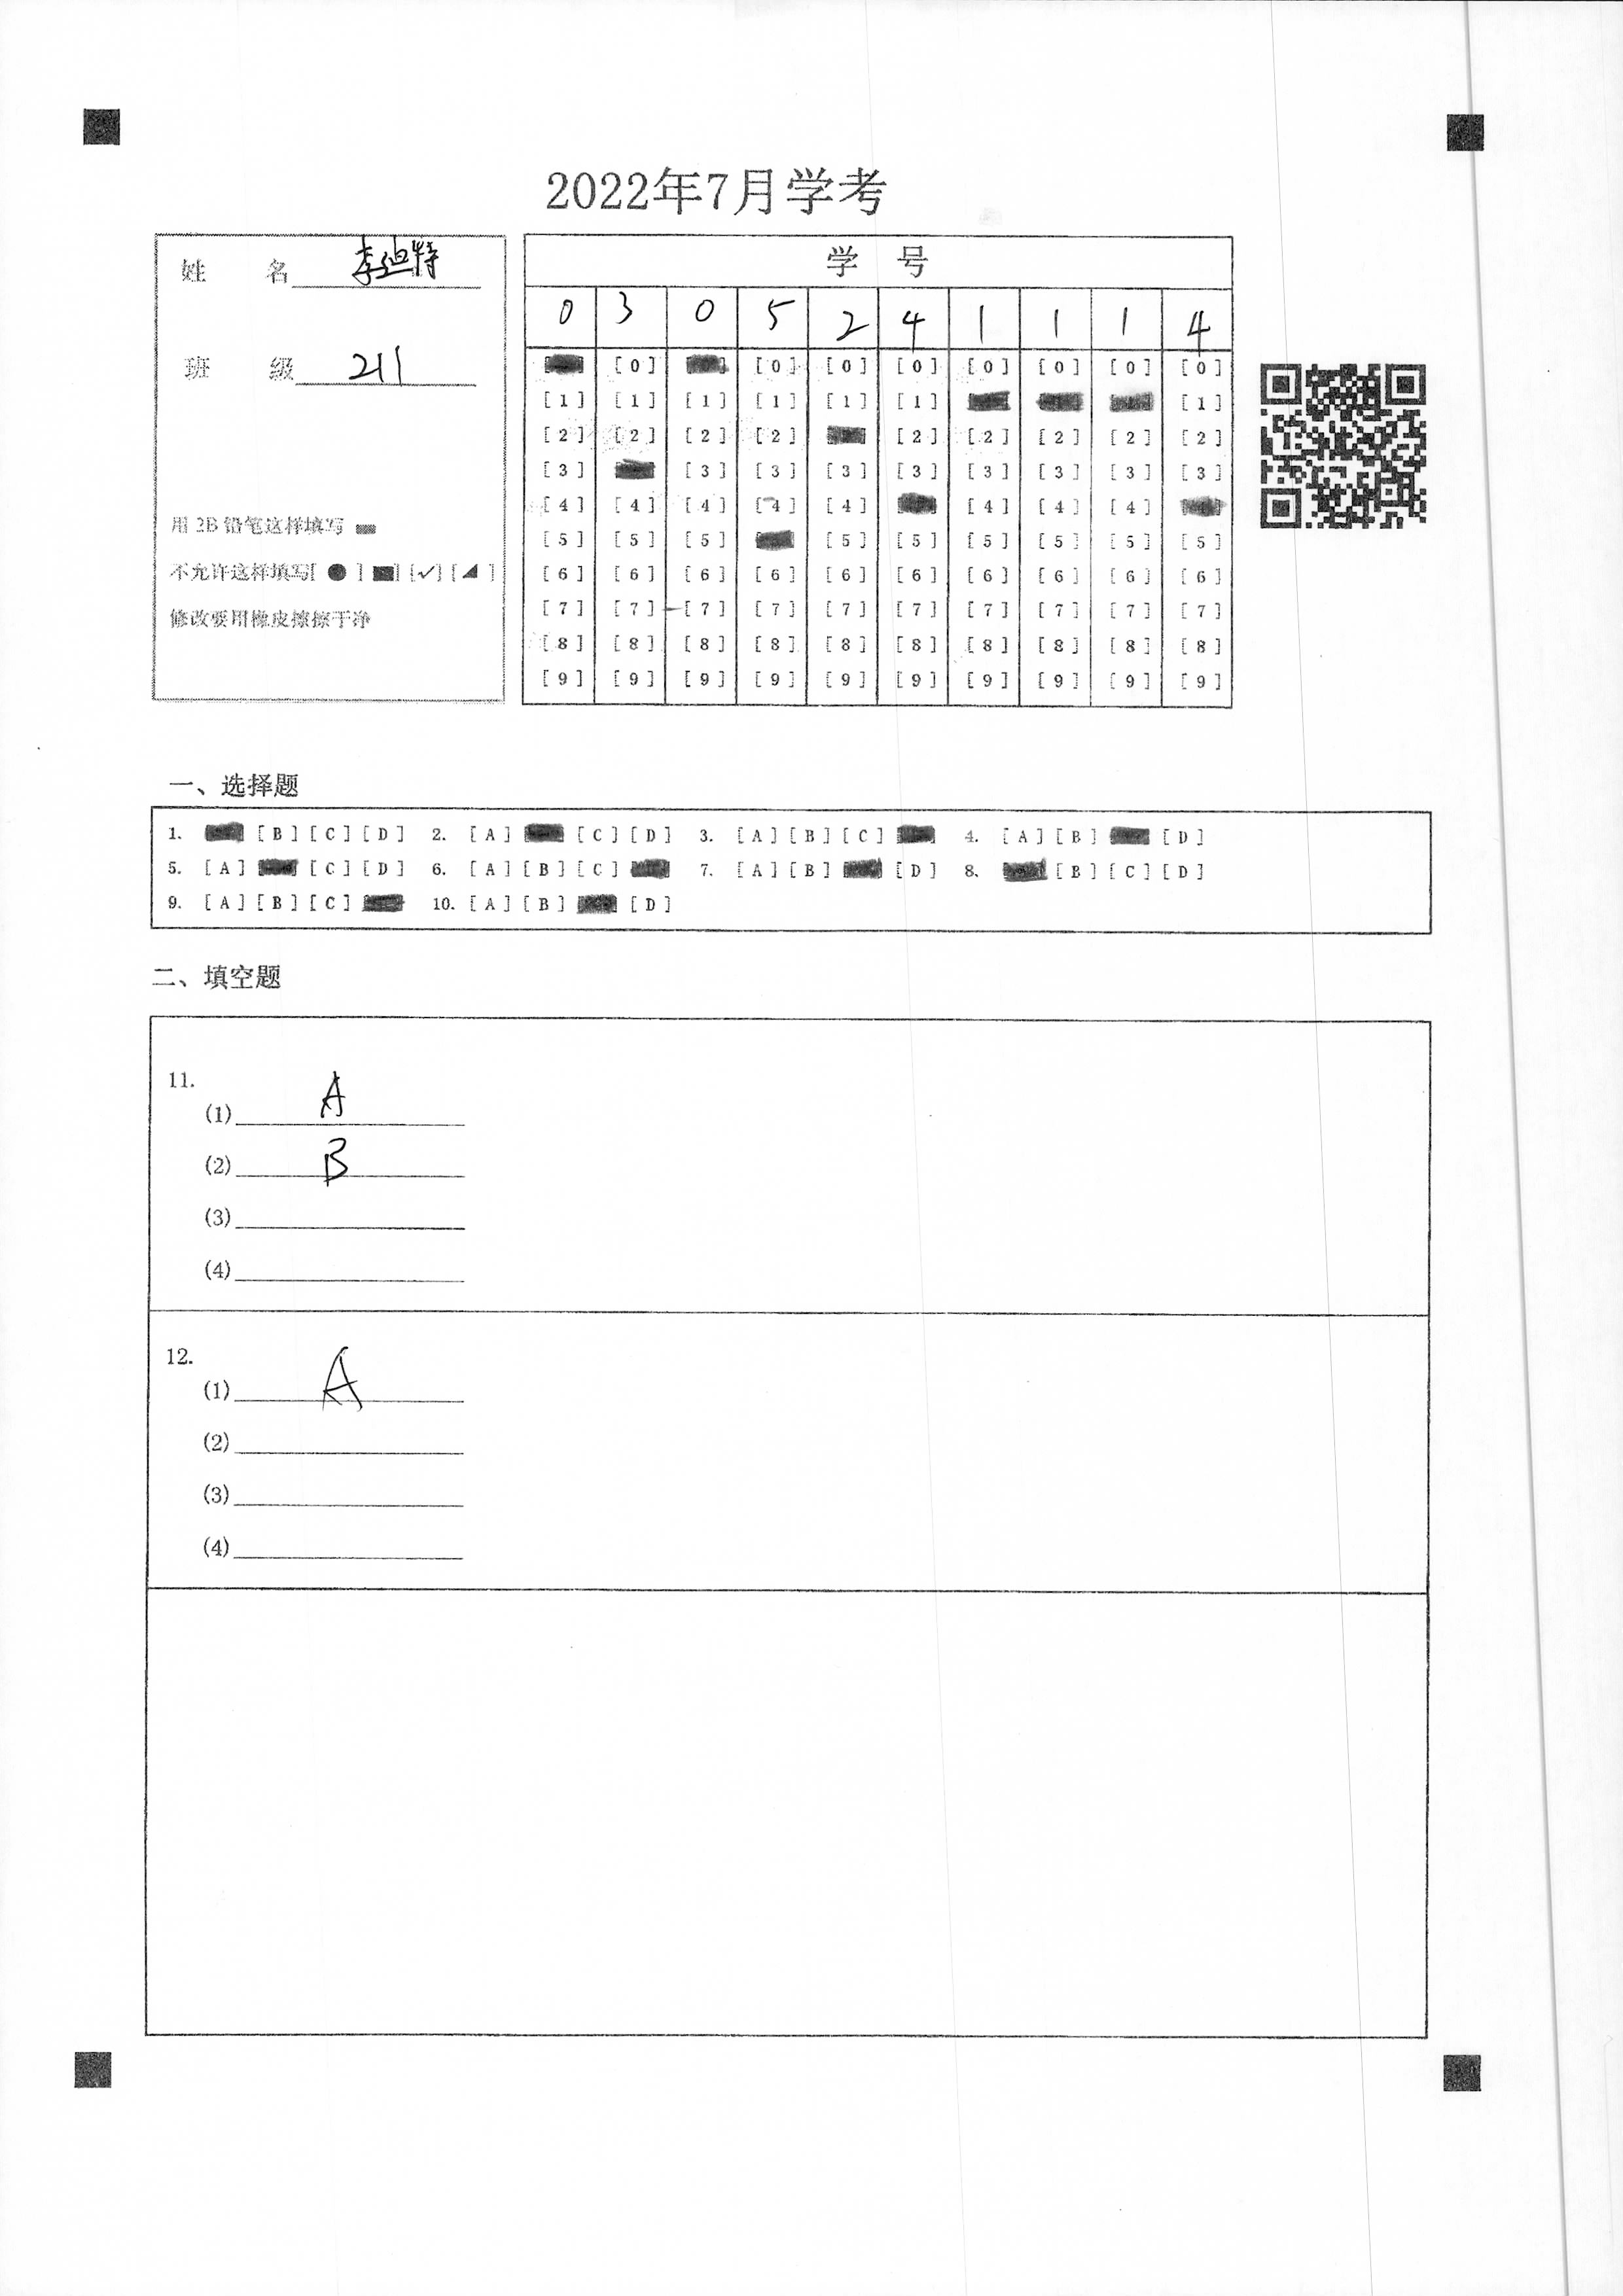 2022年7月学考
姓 名 李迪特
班 级 211
用 2B 铅笔这样填写
不允许这样填写[ ● ] [■] [✓] [◢ ]
修改要用橡皮擦擦干净
学 号
0 3 0 5 2 4 1 1 1 4
[0] [0] [0] [0] [0] [0] [0] [0]
[1] [1] [1] [1] [1] [1] [1]
[2] [2] [2] [2] [2] [2] [2] [2] [2]
[3] [3] [3] [3] [3] [3] [3] [3] [3]
[4] [4] [4] [4] [4] [4] [4] [4]
[5] [5] [5] [5] [5] [5] [5] [5] [5]
[6] [6] [6] [6] [6] [6] [6] [6] [6] [6]
[7] [7] [7] [7] [7] [7] [7] [7] [7] [7]
[8] [8] [8] [8] [8] [8] [8] [8] [8] [8]
[9] [9] [9] [9] [9] [9] [9] [9] [9] [9]
一、选择题
1. [B] [C] [D] 2. [A] [C] [D] 3. [A] [B] [C] 4. [A] [B] [D]
5. [A] [C] [D] 6. [A] [B] [C] 7. [A] [B] [D] 8. [B] [C] [D]
9. [A] [B] [C] 10. [A] [B] [D]
二、填空题
11.
(1) A
(2) B
(3)
(4)
12.
(1) A
(2)
(3)
(4)